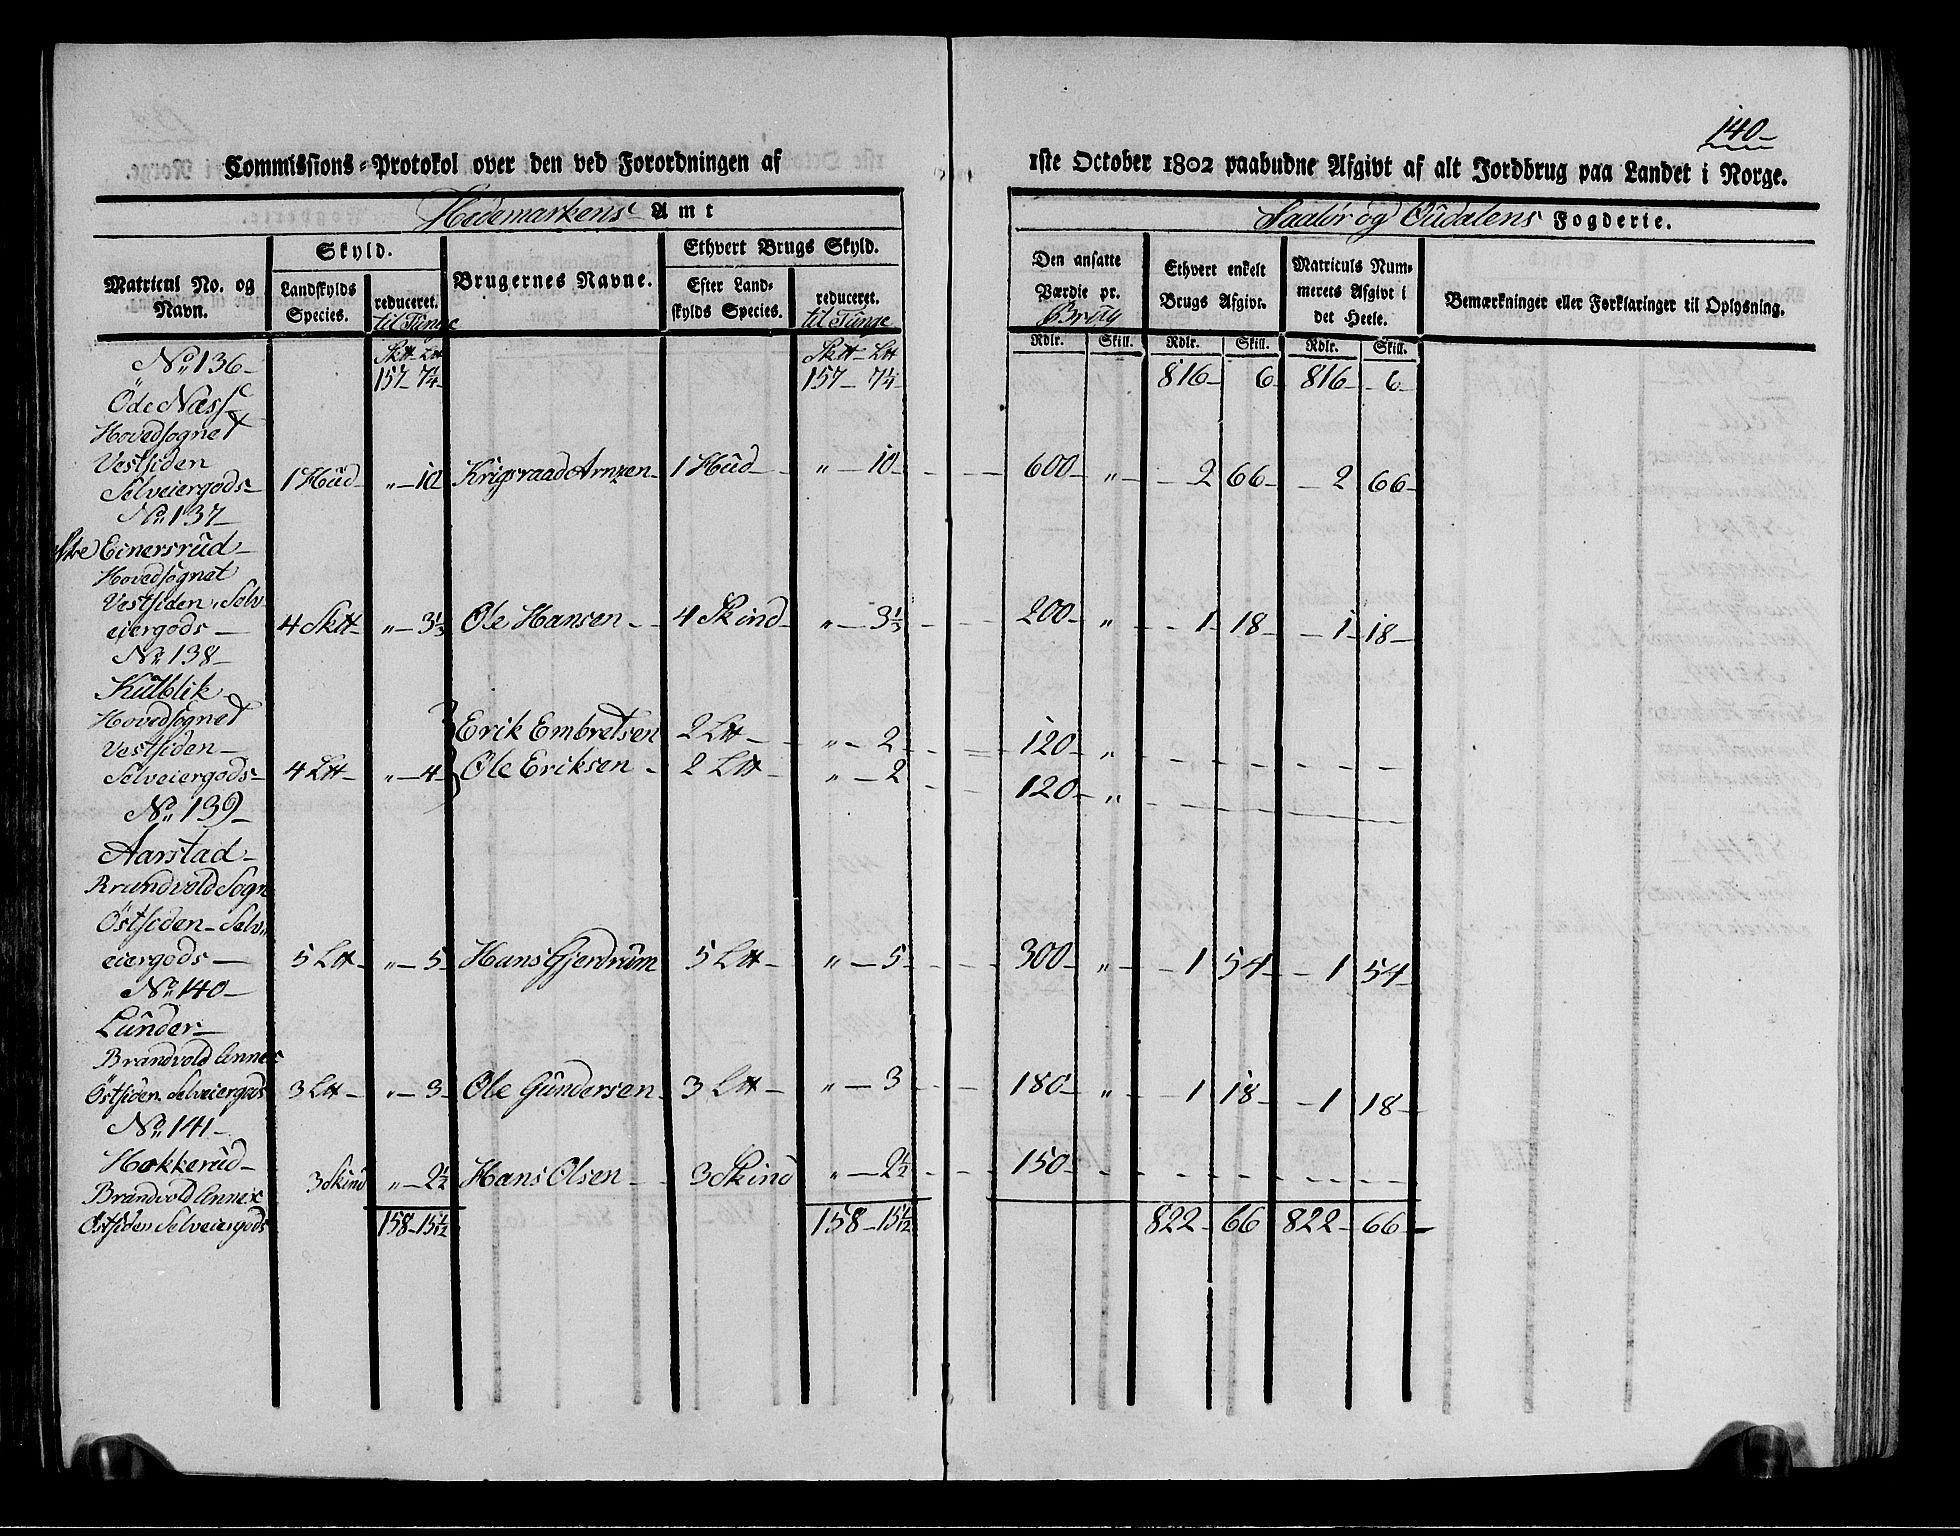 140
Commissions-Protokol over den ved Forordningen af
1ste October 1802 paabudne Afgivt af alt Jordbrug paa Landet i Norge.
Hedemarkens Amt
Soelør og Oudalens Fogderie.
Matricul No. og Navn.
Skyld.
Landskylds Species.
reduceret. til Tunge
Brugernes Navne.
Ethvert Brugs Skyld.
Efter Landskylds Species.
reduceret. til Tunge
Den ansatte Værdie pr. Brug
Ethvert enkelt Brugs Afgivt.
Matriculs Nummerets Afgivt i det Heele.
Bemærkninger eller Forklaringer til Oplysning.
Rdlr. Skill. Rdlr. Skill. Rdlr. Skill.
No. 136 Sktt Ltt Sktt Ltt
157 7¼ 157 7¼ 816 6 816 6
Öde Næss
Hovedsognet
Vestsiden
Selveiergods 1 Hud „ 10 Krigsraad Arnzen 1 Hud „ 10 600 „ 2 66 2 66
No. 137
Einersrud
Hovedsognet
Vestsiden, Selv
eiergods 4 Sktt „ 3⅓ Ole Hansen 4 Skind „ 3⅓ 200 „ 1 18 1 18
No. 138
Kulblik
Hovedsognet Erik Embretsen 2 Ltt „ 2 120 „
Vestsiden
Selveiergods 4 Ltt „ 4 Ole Eriksen 2 Ltt „ 2 120 „
No. 139
Aarstad
Brundvold Sogn
Östsiden Selv
eiergods 5 Ltt „ 5 Hans Gjerdrum 5 Ltt „ 5 300 „ 1 54 1 54
No. 140
Lunder
Brandvold Annex
Östsiden Selveiergods 3 Ltt „ 3 Ole Gundersen 3 Ltt „ 3 180 „ 1 18 1 18
No. 141
Hokkerud 3 Skind „ 2½ Hans Olsen 3 Skind „ 2½ 150
Brandvold Annex
Östsiden Selveiergods 158 15 1/12 158 15 1/12 822 66 822 66